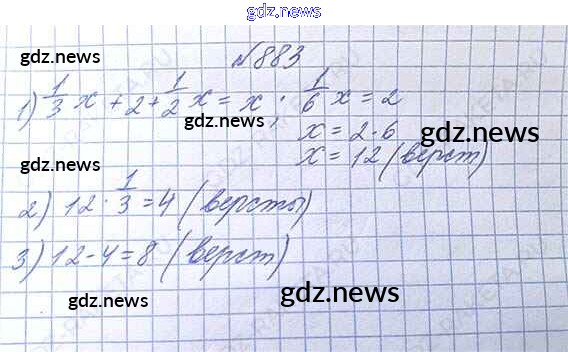 gdz.news
№883
gdz.news
1) 1/3 x + 2 + 1/2 x = x ; 1/6 x = 2
gdz.news
x = 2·6
gdz.news
x = 12 (верст)
gdz.news
2) 12 · 1/3 = 4 (версты)
3) 12 - 4 = 8 (верст)
gdz.news
gdz.news